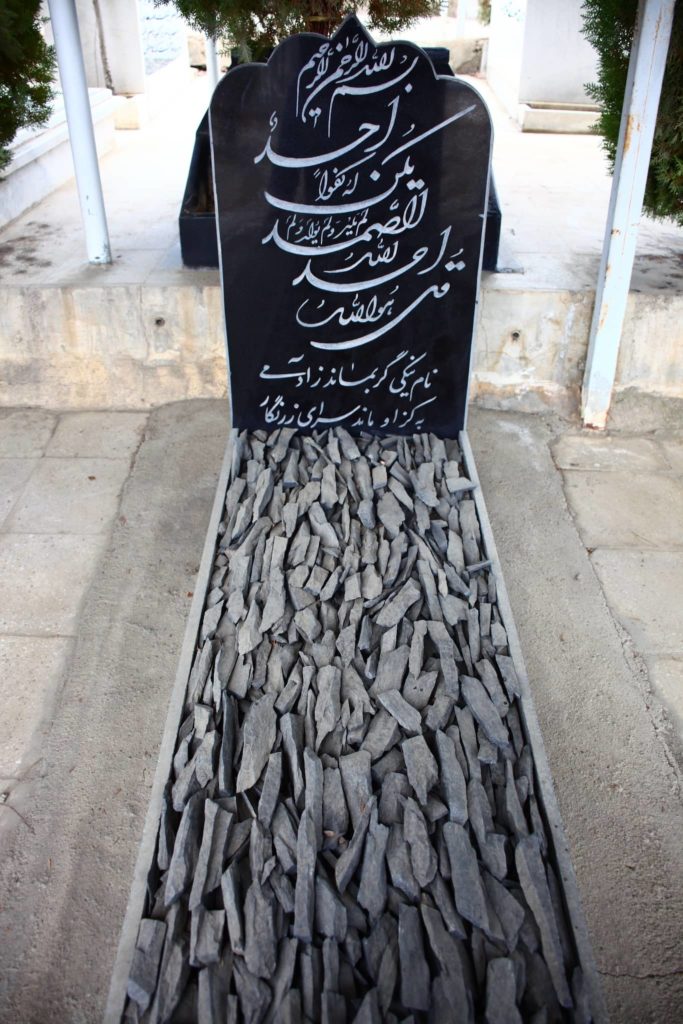 بسم الله الرحمن الرحیم
قل هو الله
احد الله
الصمد لم یلد ولم یولد ولم
یکن له کفواً
احد
نام نیکی گر بماند ز آدمی
به کز او ماند سرای زرنگار